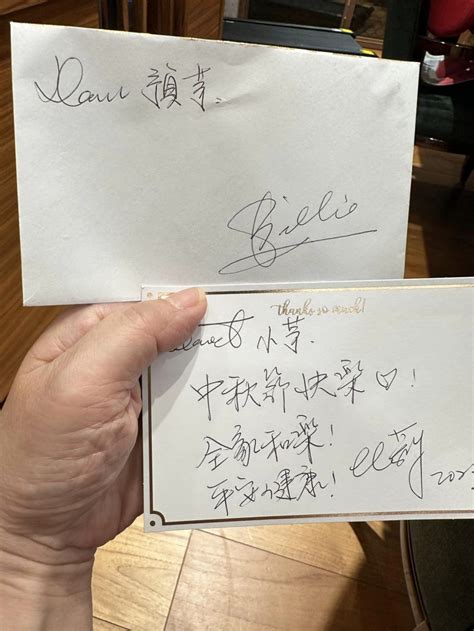 Dear 芽.
Billie
Thanks so much!
小芽.
中秋節快樂♡!
全家和樂!
平安健康! 比莉